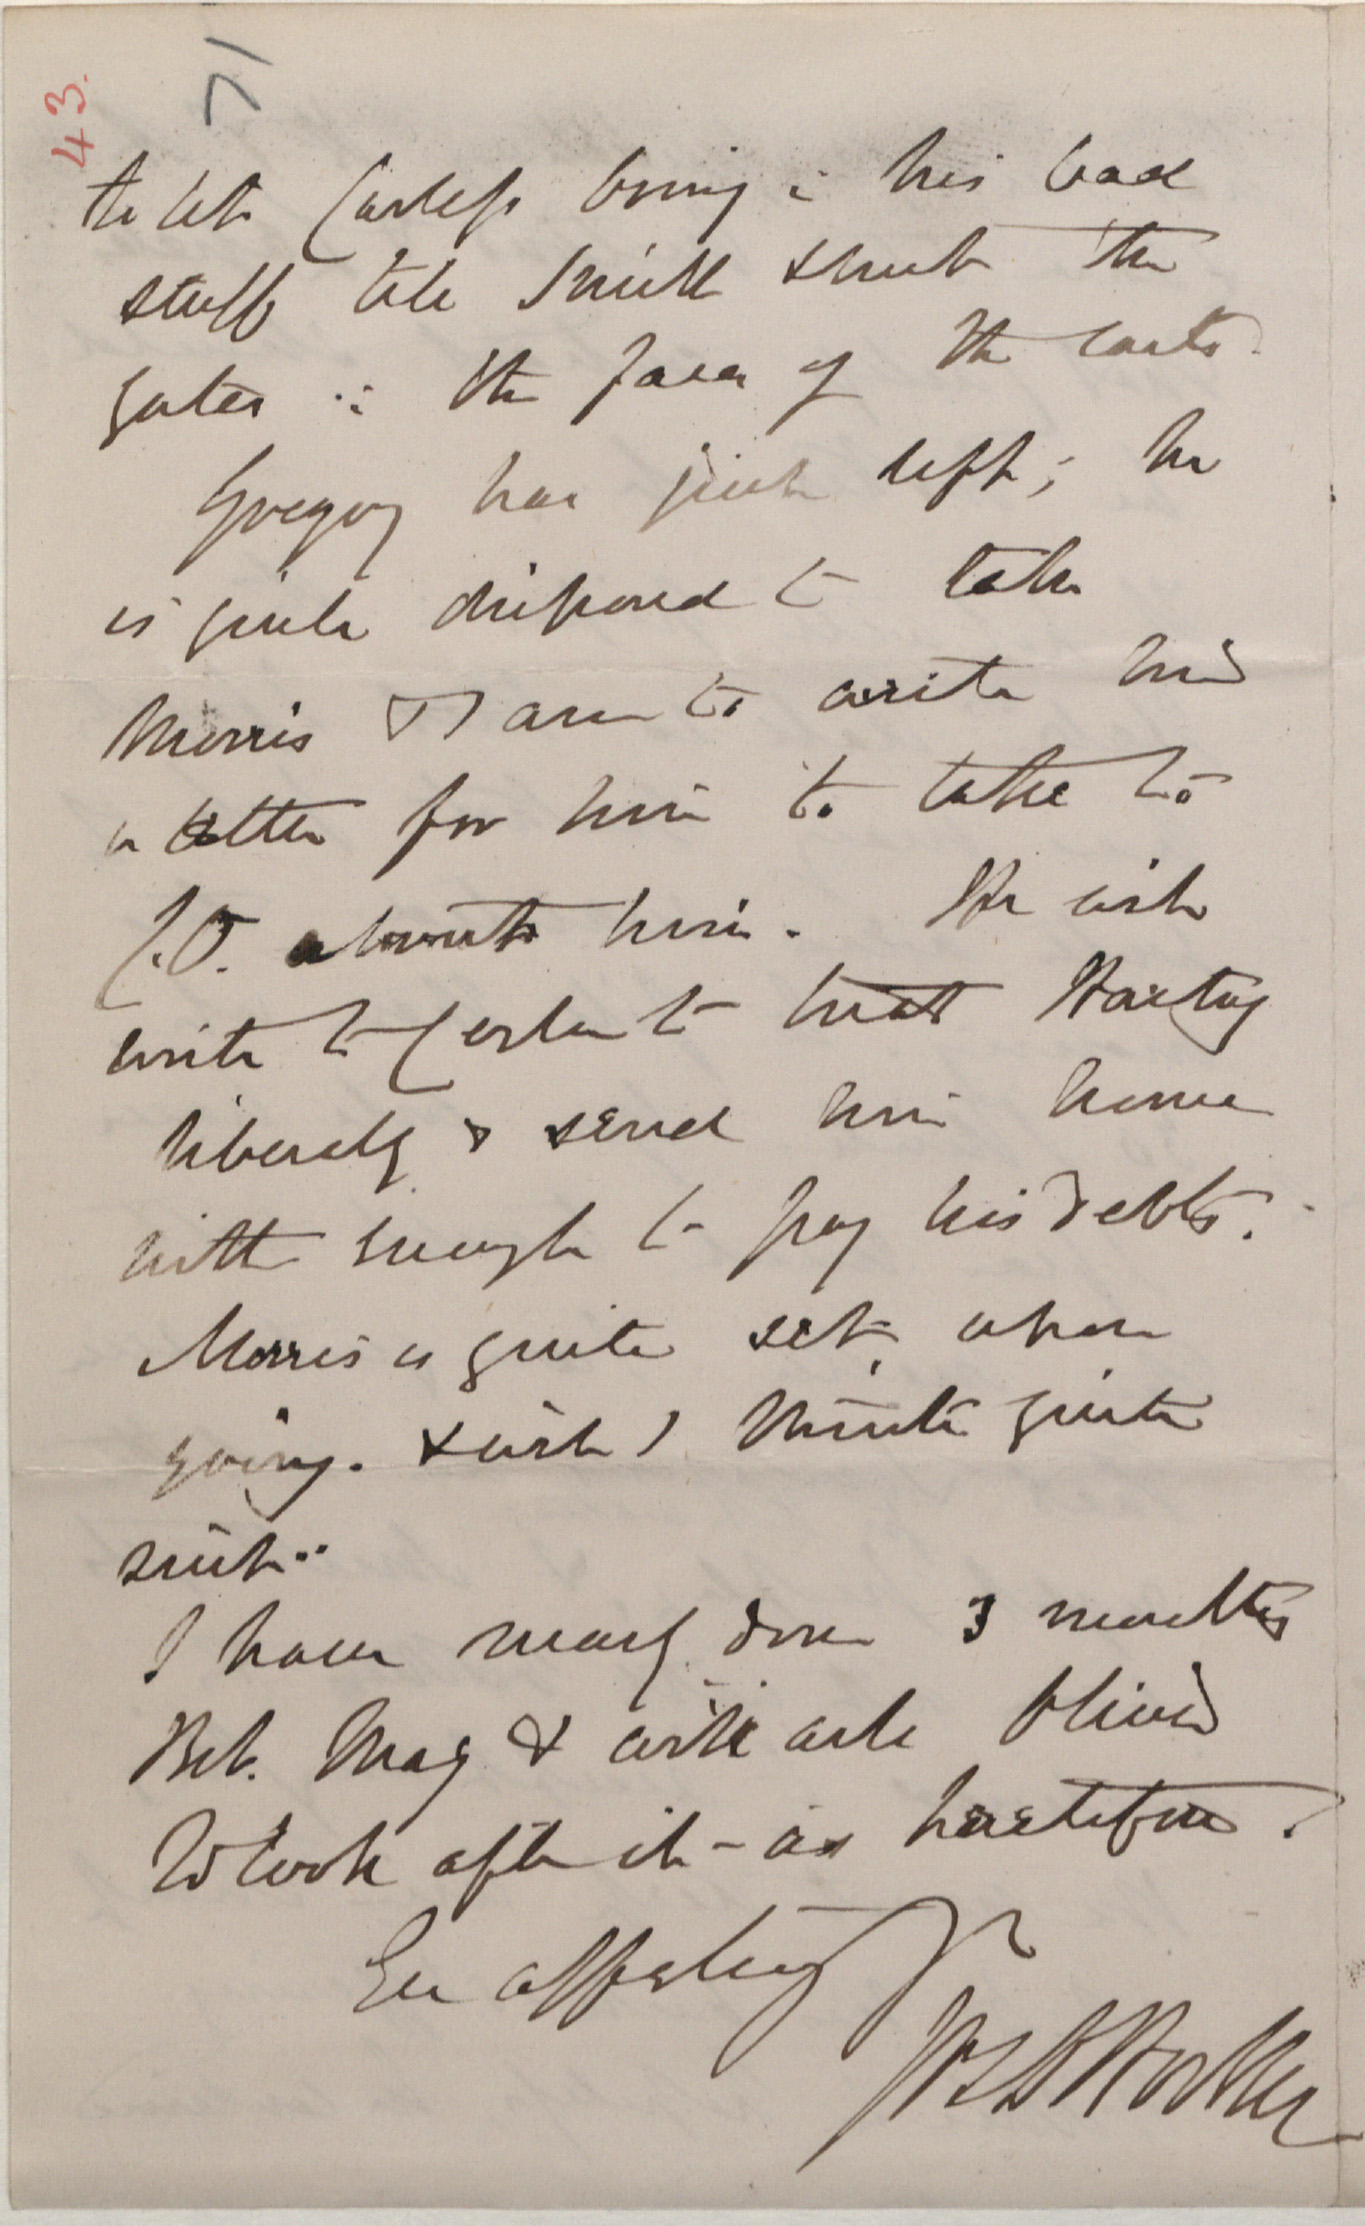 43.
71
to let Carless bring in his bad
stuff tell Smith shut the
gates in the faces of the carts.
Gregory has just left; he
is quite disposed to take
Morris & I am to write him
a letter for him to take to
C.O. about him. He will
write to Ceylon to treat Hartog
liberally & send him home
with enough to pay his debts.
Morris is quite set upon
going. & will I think quite
suit.
I have nearly done 3 months
Bot. Mag & will ask Oliver
to look after it – as heretofore.
Ever affectionately Yr
Jos D Hooker